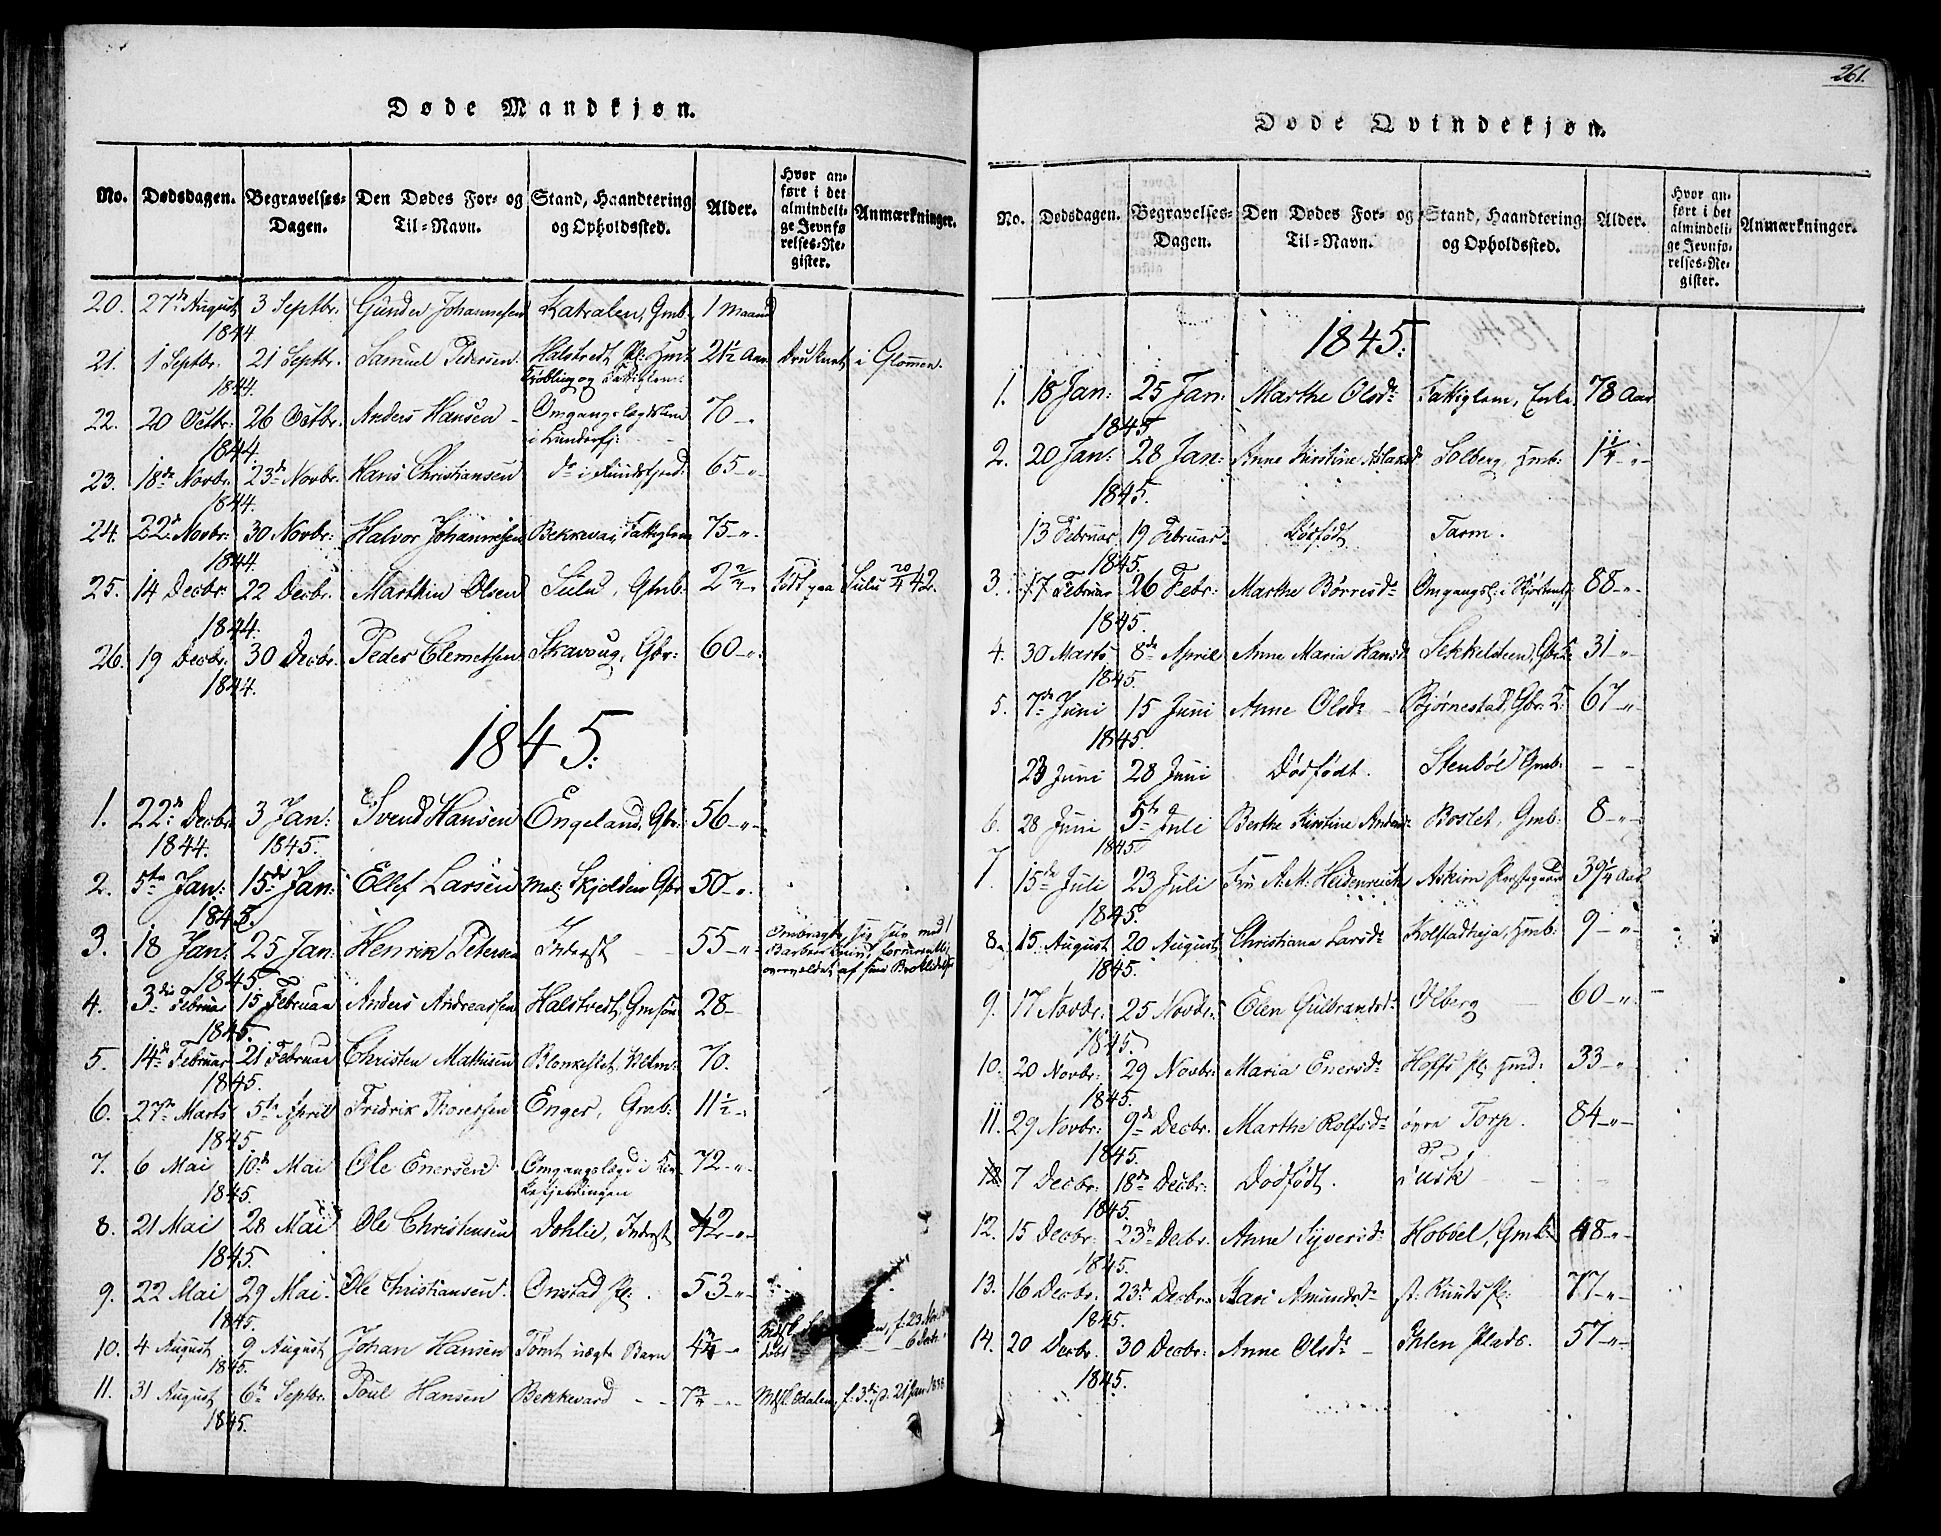 Døde Mandkjøn.
No. Dødsdagen. Begravelses-Dagen. Den Dødes For- og Til-Navn. Stand, Haandtering og Opholdssted. Alder. Hvor anført i det almindelige Jevnførelses-Register. Anmærkninger.
20. 27de August 3 Septbr. Gunder Johannesen Katralen, Gmb. 1 Maaned
1844
21. 1 Septbr. 21 Septbr. Samuel Pedersen Halstvedt Pl: 21½ Aar Druknet i Glommen.
1844.
22. 20 Octbr. 26 Octbr. Anders Hansen Omgangslægdslem 70 -"-
1844.
23. 18de Novbr. 23de Novbr. Hans Christiansen do i 65 -"-
1844.
24. 22de Novbr: 30 Novbr: Halvor Johannesen Bekkevar, Fattiglem 75 -"-
1844.
25. 14 Decbr. 22 Decbr. Marthin Olsen Sulu, Gmb. 2 2/4 -"- Født paa Sulu 20/4 42.
1844.
26. 19 Decbr. 30 Decbr. Peder Clemetsen Skavoug, Gbr: 60 -"-
1844.
1845.
1. 22de Decbr. 3 Jan: Svend Hansen Engeland, Gbr: 56 -"-
1844. 1845.
2. 5te Jan: 15de Jan: Ellef Larsen Skjolden Gbr 50 -"-
1845.
3. 18 Jan: 25 Jan: Henrik Pedersen Inderst 55 -"- Ombragte sig selv med
1845 Barberkniv
4. 3die Februar 15 Februar Anders Andreassen Halstvedt, Gmsøn 28 -
1845.
5. 14de Februar 21 Februar Christen Mathisen 70.
1845.
6. 27de Marts 5te April Fredrik Thoresen Enger, Gmb: 11½ -"-
1845.
7. 6 Mai 10de Mai Ole Enersen Omgangslægd i 72 -"-
1845.
8. 21 Mai 28 Mai Ole Christensen Dohlie, Inderst 42 -"-
1845.
9. 22 Mai 29 Mai Ole Christiansen Onstad Pl: 53 -"-
1845.
10. 4 August 9 August Johan Hansen Tømt uægte Barn
1845.
11. 31 August 6te Septbr. Poul Hansen Bekkevard 7 3/4 -"- Odalen, f. 3die, d. 21 Jan 1838
1845.
261.
Døde Qvindekjøn.
No. Dødsdagen. Begravelses-Dagen. Den Dødes For- og Til-Navn. Stand, Haandtering og Opholdssted. Alder. Hvor anført i det almindelige Jevnførelses-Register. Anmærkninger.
1845.
1. 18 Jan: 25 Jan: Marthe Olsdr Fattiglem, Enke 78 Aar
1845
2. 20 Jan: 28 Jan: Anne Kirstine Aslaksd Solberg, Hmb: 1¼ -"-
1845.
13 Februar 19 Februar Dødfødt Tarm.
1845.
3. 17 Februar 26 Febr: Marthe Børresdr Omgangsl: i 88 -"-
1845.
4. 30 Marts 8de April Anne Maria Hansd. Sekkelsteen, 31 -"-
1845.
5. 7de Juni 15 Juni Anne Olsdr Bjørnestad, 67 -"-
1845.
23 Juni 28 Juni Dødfødt. Stenbøl Gmb: - -
6. 28 Juni 5te Juli Berthe Kirstine Andersdr Boslet, Gmb: 8 -"-
1845.
7. 15de Juli 23 Juli Fru A. M. Heidenreich Askim Præstegaard 39¼ Aar
1845.
8. 15 August 20 August Christiana Larsdr Kolstadheja, Hmb: 9 -"-
1845.
9. 17 Novbr: 25 Novbr: Elen Gulbrandsdr Olberg 60 -"-
1845.
10. 20 Novbr: 29 Novbr: Maria Enersdr Hoffs Pl: 33 -"-
1845.
11. 29 Novbr: 9de Decbr: Marthe Rolfsdr øvre Torp. 84 -"-
1845.
12 7 Decbr: 18de Decbr: Dødfødt. Rusk
1845.
12. 15 Decbr: 23de Decbr. Anne Syversdr Hobbel, Gmb: 48 -"-
1845.
13. 16 Decbr: 23de Decbr: Kari Amundsdr 77 -"-
1845.
14. 20 Decbr. 30 Decbr: Anne Olsdr Ihlen Plads. 57 -"-
1845.